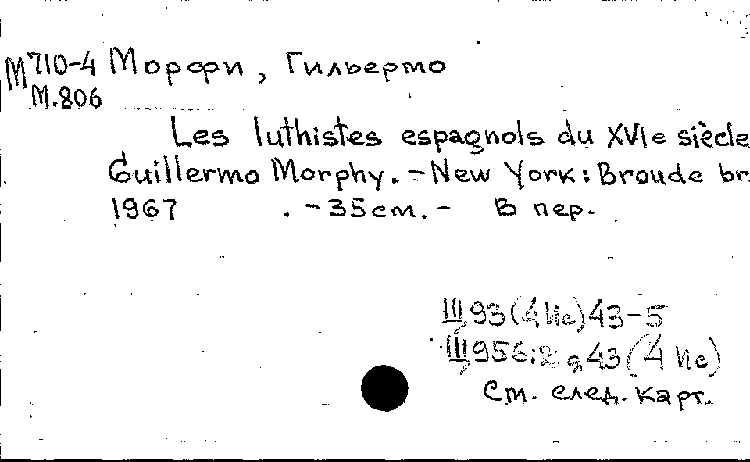 М710-4 Морфи, Гильермо
М.806
Les luthistes espagnols du XVIe siècle
Guillermo Morphy. - New York: Broude br
1967 . - 35cm. - В пер.
Щ93(4Ис)43-5
Щ956:2 я43(4Ис)
См. след. карт.